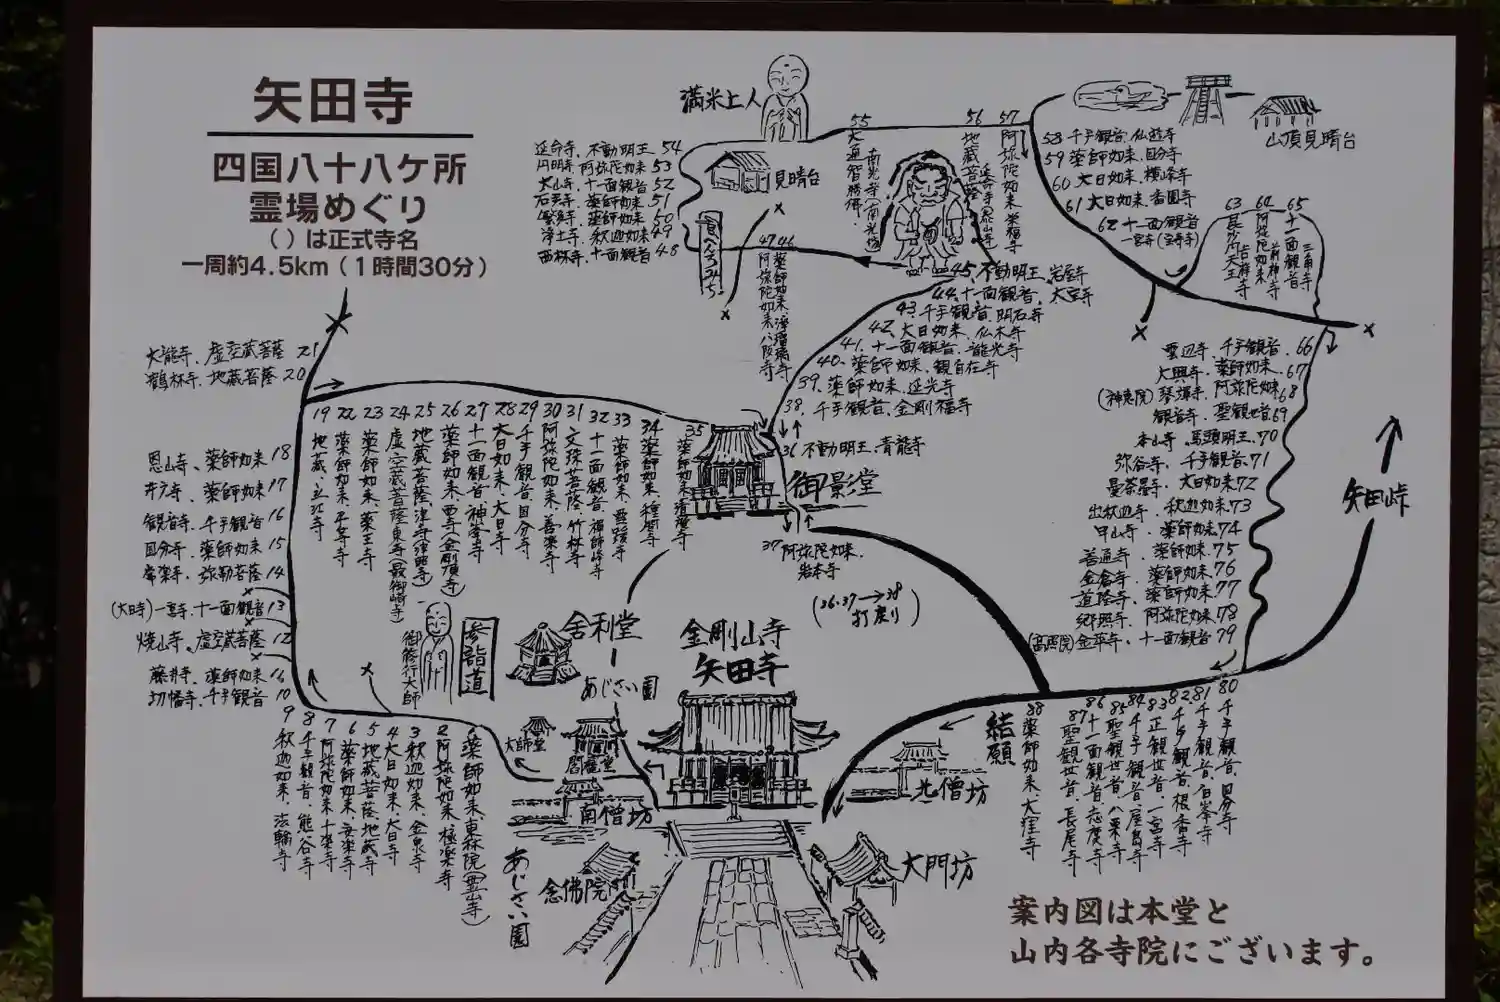 矢田寺
四国八十八ケ所
霊場めぐり
（ ）は正式寺名
一周約4.5km（１時間30分）
満米上人
山頂見晴台
見晴台
延命寺、不動明王 54
円明寺、阿弥陀如来 53
太山寺、十一面観音 52
石手寺、薬師如来 51
繁多寺、薬師如来 50
浄土寺、釈迦如来 49
西林寺、十一面観音 48
55 大通智勝佛、南光寺（南光坊
56 地蔵菩薩
57 阿弥陀如来、栄福寺
58 千手観音、仏遊寺
59 薬師如来、国分寺
60 大日如来、横峰寺
61 大日如来、香園寺
62 十一面観音
一宮寺（宝寿寺）
63 毘沙門天王 吉祥寺
64 阿弥陀如来 前神寺
65 十一面観音 三角寺
47 阿弥陀如来、八阪寺
46 薬師如来、浄瑠璃寺
45、不動明王、岩屋寺
44、十一面観音、大宝寺
43、千手観音、明石寺
42、大日如来、仏木寺
41、十一面観音、龍光寺
40、薬師如来、観自在寺
39、薬師如来、延光寺
38、千手観音、金剛福寺
36 不動明王、青龍寺
御影堂
37 阿弥陀如来、
岩本寺
（36・37→38
打戻り）
雲辺寺、千手観音、66
大興寺、薬師如来、67
（神恵院）琴弾寺、阿弥陀如来68
観音寺、聖観世音69
本山寺、馬頭明王、70
弥谷寺、千手観音、71
曼荼羅寺、大日如来72
出釈迦寺、釈迦如来、73
甲山寺、薬師如来74
善通寺、薬師如来、75
金倉寺、薬師如来76
道隆寺、薬師如来、77
郷照寺、阿弥陀如来、78
（高照院）金華寺、十一面観音79
矢田峠
太龍寺、虚空蔵菩薩 21
鶴林寺、地蔵菩薩 20
恩山寺、薬師如来 18
井戸寺、薬師如来 17
観音寺、千手観音 16
国分寺、薬師如来 15
常楽寺、弥勒菩薩 14
（大日寺）一宮寺、十一面観音13
焼山寺、虚空蔵菩薩 12
藤井寺、薬師如来
切幡寺、千手観音 10
19 地蔵、立江寺
22 薬師如来、平等寺
23 薬師如来、薬王寺
24 虚空蔵菩薩、東寺（最御崎寺）
25 地蔵菩薩、津寺（津照寺）
26 薬師如来、西寺（金剛頂寺）
27 十一面観音、神峯寺
28 大日如来、大日寺
29 千手観音、国分寺
30 阿弥陀如来、善楽寺
31 文殊菩薩、竹林寺
32 十一面観音、禅師峰寺
33 薬師如来、雪蹊寺
34 薬師如来、種間寺
35 薬師如来、清瀧寺
御修行大師
参詣道
舎利堂
あじさい園
金剛山寺
矢田寺
大師堂
閻魔堂
南僧坊
北僧坊
結願
念佛院
大門坊
あじさい園
9 釈迦如来、法輪寺
8 千手観音、熊谷寺
7 阿弥陀如来、十楽寺
6 薬師如来、安楽寺
5 地蔵菩薩、地蔵寺
4 大日如来、大日寺
3 釈迦如来、金泉寺
2 阿弥陀如来、極楽寺
薬師如来、東林院（霊山寺）
88 薬師如来、大窪寺
87 聖観世音、長尾寺
86 十一面観音、志度寺
85 聖観世音、八栗寺
84 千手観音、屋島寺
83 正観世音、一宮寺
82 千手観音、根香寺
81 千手観音、白峯寺
80 千手観音、国分寺
案内図は本堂と
山内各寺院にございます。